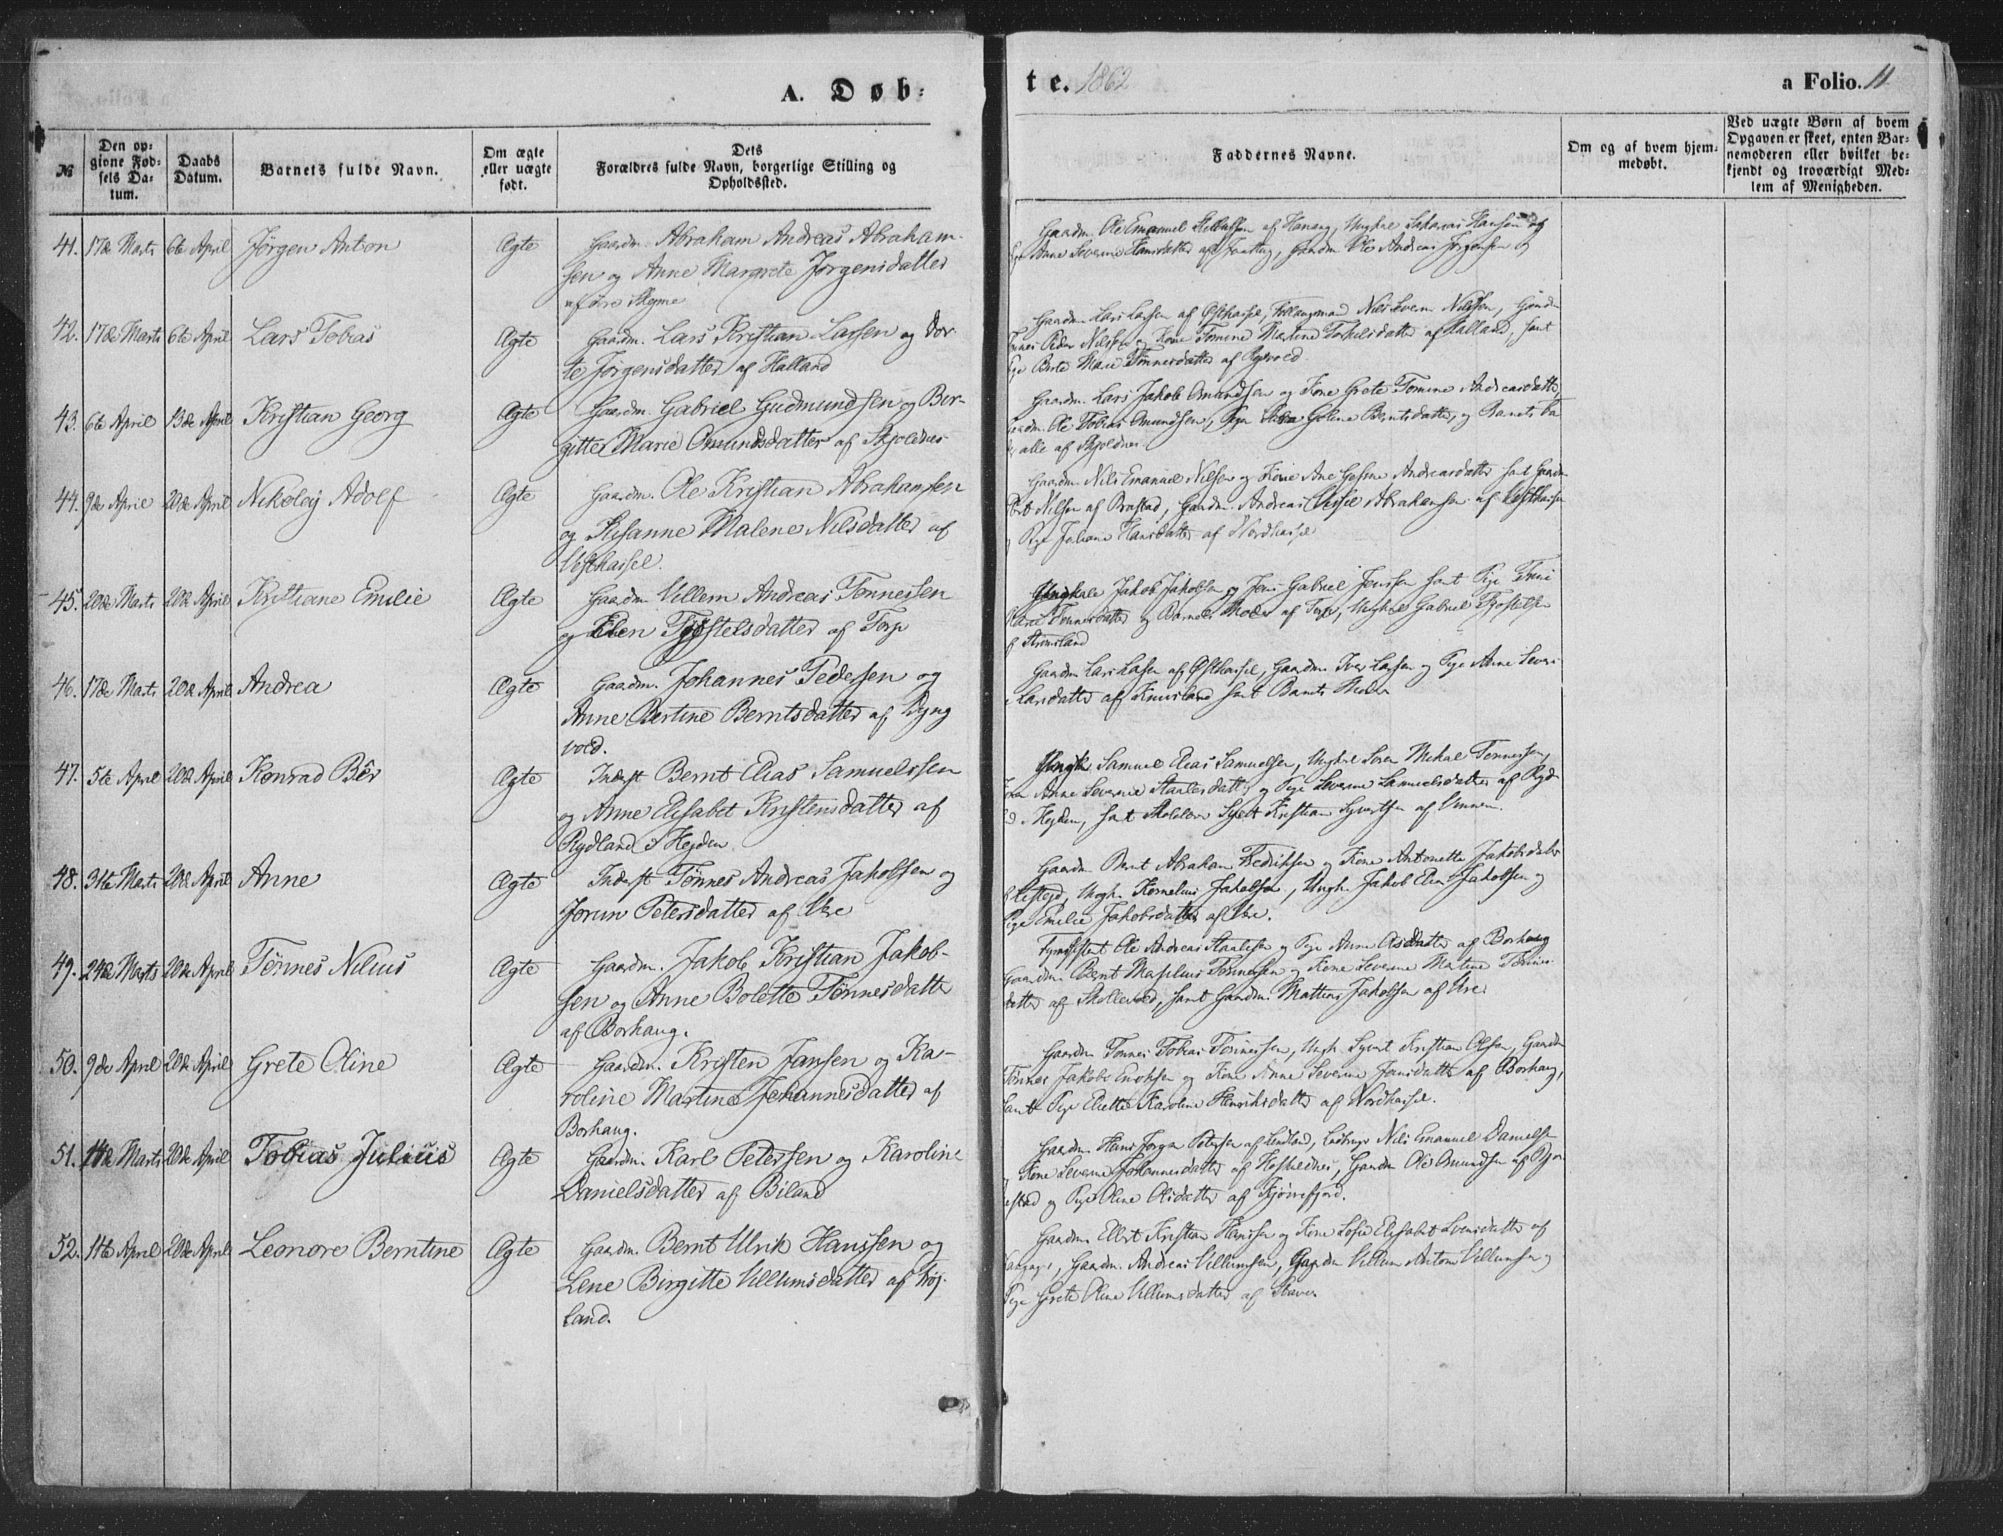 A. Døb-
te. 1862
a Folio. 11
№
Den op-
givne Fød-
sels Da-
tum.
Daabs
Datum.
Barnets fulde Navn.
Om ægte
eller uægte
født.
Dets
Forældres fulde Navn, borgerlige Stilling og
Opholdssted.
Faddernes Navne.
Om og af hvem hjem-
medøbt.
Ved uægte Børn af hvem
Opgaven er skeet, enten Bar-
nemoderen eller hvilket be-
kjendt og troværdigt Med-
lem af Menigheden.
41. 17de Marts 6te April Jørgen Anton Ægte Gaardm. Abraham Andreas Abraham-
sen og Anne Margrete Jørgensdatter
af Øre
Gaardm. Ole Emanuel af Hananger, Ungkarl Sakarias Hansen og
Anne Severine Hansdatter af Gaardm. Ole Andreas Jørgensen
42. 17de Marts 6te April Lars Tobias Ægte Gaardm. Lars Kristian Larsen og Dor-
te Jørgensdatter af Halland
Gaardm. Lars Larsen af Østhassel, Nils Nilssen, Gaardm
Peder Nilsen og Kone Tomine Martine Torkelsdatter af Halland, samt
Pige Berte Marie Tønnesdatter af
43. 6te April 13de April Kristian Georg Ægte Gaardm. Gabriel Gudmundsen og Bir-
gitte Marie Omundsdatter af Skjoldnes
Gaardm. Lars Jakob Omundsen og Kone Grete Tomine Andreasdatter,
Ole Tobias Omundsen, Pige Golene Berntsdatter, og Barnets Fa
alle af Skjoldnes
44. 9de April 20de April Nikolay Adolf Ægte Gaardm. Ole Kristian Abrahamsen
og Susanne Malene Nilsdatter af
Vesthassel.
Gaardm. Nils Emanuel Nilsen og Kone Ane Gesine Andreasdatter samt Gaardm
Nilsen af Brastad, Gaardm. Andreas Abrahamsen af Vesthassel
Pige Juliane Hansdatter af Nordhassel
45. 20de Marts 20de April Kristiane Emilie Ægte Gaardm Villem Andreas Tønnessen
og Elen Tjøstelsdatter af Torp
Ungkarle Jakob Jakobsen og Jens Gabriel Jenssen samt Pige
Tønnesdatter og Barnets Moder af Torp, Ungkarl Gabriel Tjøstelsen
46. 17de Marts 20de April Andrea Ægte Gaardm. Johannes Pedersen og
Anne Bertine Berntsdatter af Lyng
vold.
Gaardm Lars Larsen af Østhassel, Gaardm. Iver Larsen og Pige Anne Severi
Larsdatter af samt Barnets Moder
47. 5te April 20de April Konrad Bêr Ægte Inderst Bernt Elias Samuelssen
og Anne Elisabet Kristensdatter af
Rydland Hejden
Samuel Elias Samuelsen, Ungkarl Søren Mikal Tønnessen,
Anne Severine og Pige Severine Samuelsdatter af Ryd
Hejden, samt Skolelærer Kristian Syvertsen af Vinnem.
48. 31te Marts 20de April Anne Ægte Inderst Tønnes Andreas Jakobsen og
Jorun Petersdatter af Vere
Gaardm Bernt Abraham Fredriksen og Kone Antonette Jakobsdatter
Ungk. Kornelius Jakobsen, Ungk. Jakob Elias Jakobsen og
Pige Emilie Jakobsdatter af Vere.
49. 24de Marts 20de April Tønnes Nilius Ægte Gaardm. Jakob Kristian Jakob-
sen og Anne Bolette Tønnesdatter
af Borhaug.
Ole Andreas Staalesen og Pige Anne Olsdatter af Borhaug
Gaardm. Bernt Tønnessen og Kone Severine Martine Tønnes
datter af Skollevold, samt Gaardm. Mathias Jakobsen af Vere
50. 9de April 20de April Grete Oline Ægte Gaardm. Kristen Jansen og Ka-
roline Martine Johannesdatter af
Borhaug.
Gaardm Tønnes Tobias Tønnessen, Ungk. Syvert Kristian Olsen, Gaardm
Tønnes Jakob Eriksen og Kone Anne Severine Jansdatter af Borhaug,
samt Pige Elette Karoline Henriksdatter af Nordhassel.
51. 11te Marts 20de April Tobias Julius Ægte Gaardm. Karl Petersen og Karoline
Danielsdatter af Biland
Gaardm Hans Jørgen Petersen af Lindland, Nils Emanuel Danielsen
Kone Severine Johannesdatter af Gaardm Ole Omundsen af
og Pige Oline Olsdatter af
52. 11te April 20de April Leonore Berntine Ægte Gaardm. Bernt Ulrik Hanssen og
Lene Birgitte Villumsdatter af Høj-
land.
Gaardm. Elert Kristian Hanssen og Kone Sofie Elisabet Svensdatter af
Gaardm. Andreas Villumsen, Gaardm Villum Anton Villumsen og
Pige Grete Oline Villumsdatter af